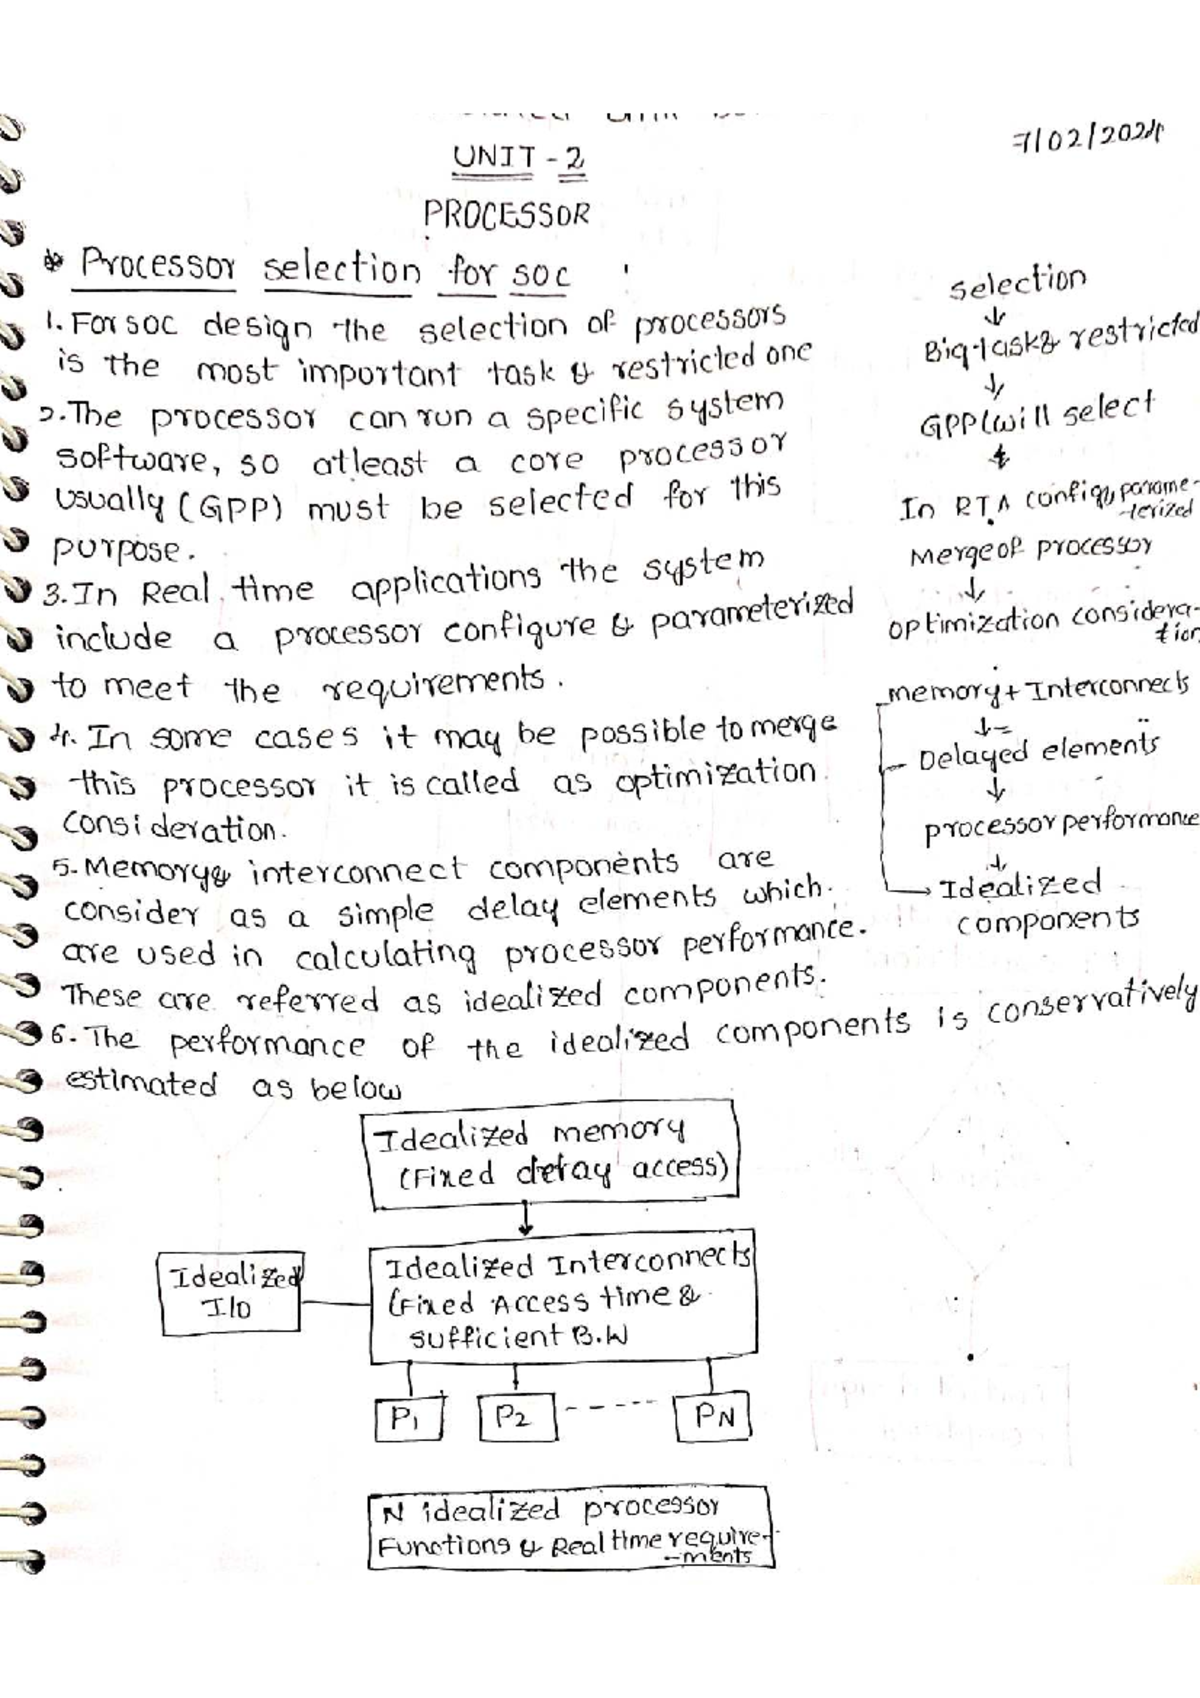 7/02/2024
UNIT - 2
PROCESSOR
Processor selection for soc :
1. For soc design the selection of processors
is the most important task & restricted one
2. The processor can run a specific system
software, so atleast a core processor
usually (GPP) must be selected for this
purpose.
3. In Real time applications the system
include a processor configure & parameterized
to meet the requirements.
4. In some cases it may be possible to merge
this processor it is called as optimization
consideration.
5. Memory & interconnect components are
consider as a simple delay elements which
are used in calculating processor performance.
These are referred as idealized components.
6. The performance of the idealized components is conservatively
estimated as below
selection
↓
Big task & restricted
↓
GPP (will select
↓
In RTA config, parame-
-terized
Merge of processor
↓
optimization considera-
tion
memory + Interconnects
↓
Delayed elements
↓
processor performance
↓
Idealized
components
Idealized memory
(Fixed delay access)
Idealized
I/O
Idealized Interconnects
(Fixed Access time &
sufficient B.W
P1 P2 ------ PN
N idealized processor
Functions & Real time require-
-ments